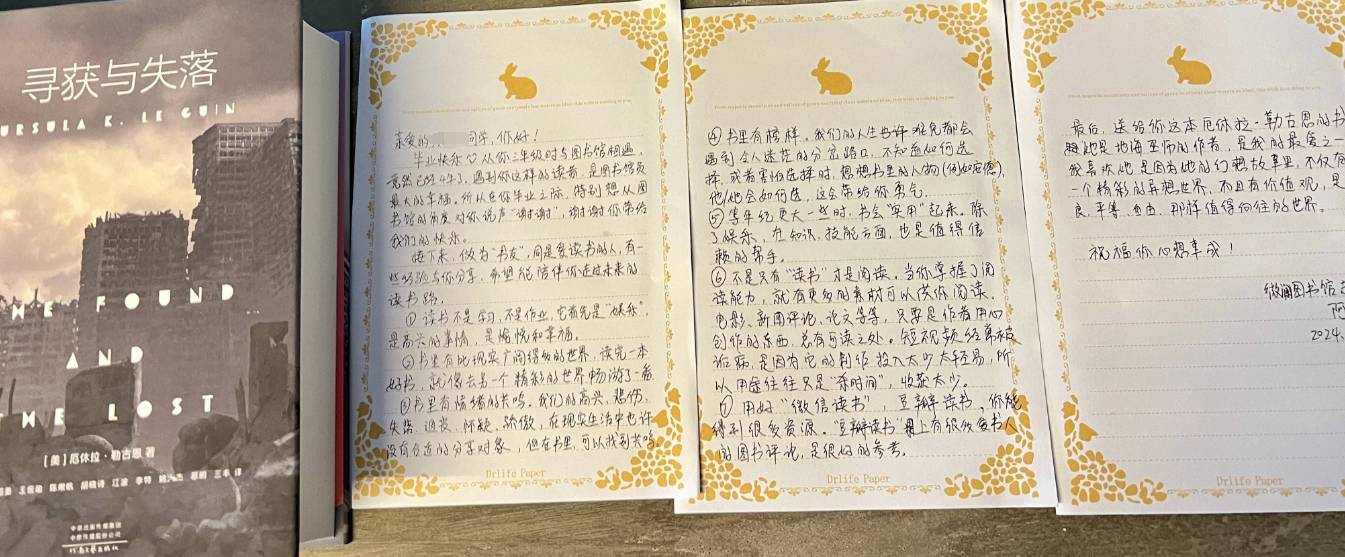 寻获与失落
URSULA K. LE GUIN
THE FOUND
AND
THE LOST
[美]厄休拉·勒古恩 著
陈楸帆 胡晓诗 李特 姚人杰 慕明 三丰 译
中原出版传媒集团
中原传媒股份公司
河南文艺出版社
亲爱的 同学,你好!
毕业快乐♡从你三年级时与图书馆相遇
竟然已经4年了,遇到你这样的读者,是图书馆员
最大的幸福。所以在你毕业之际,特别想从图
书馆的角度对你说声“谢谢”,谢谢你带给
我们的快乐。
接下来,做为“书友”,同是爱读书的人,有一
些经验与你分享,希望能陪伴你走过未来的
读书路。
①读书不是学习,不是作业,它首先是“娱乐”,
是高兴的事情,是愉悦和幸福。
②书里有比现实广阔得多的世界,读完一本
好书,就像去另一个精彩的世界畅游了一番
③书里有情绪的共鸣。我们的高兴、悲伤、
失落、沮丧、怀疑、骄傲,在现实生活中也许
没有合适的分享对象,但在书里,可以找到共鸣。
Drlife Paper
④书里有榜样。我们的人生也许难免都会
遇到令人迷茫的分岔路口,不知道如何选
择,或者害怕选择时,想想书里的人物(例如
他/她会如何选,这会带给你勇气。
⑤等年纪更大一些时,书会“实用”起来。除
了娱乐,在知识、技能方面,也是值得信
赖的帮手。
⑥不是只有“读书”才是阅读。当你掌握了阅
读能力,就有更多的素材可以供你阅读。
电影、新闻评论、论文等等,只要是作者用心
创作的东西,总有可读之处。短视频经常被
诟病,是因为它的制作投入太少太轻易,所
以用途往往只是“杀时间”,收获太少。
⑦用好“微信读书”,豆瓣读书,你能
得到很多资源。“豆瓣读书”上有很多爱书人
的图书评论,是很好的参考。
Drlife Paper
最后,送给你这本厄休拉·勒古恩的书
她是地海巫师的作者,是我的最爱之一
我喜欢她是因为她的幻想故事里,不仅有
一个精彩的异想世界,而且有价值观,是
良、平等、自由,那样值得向往的世界。
祝福你心想事成!
图书馆
阿
2024.
Drlife Paper